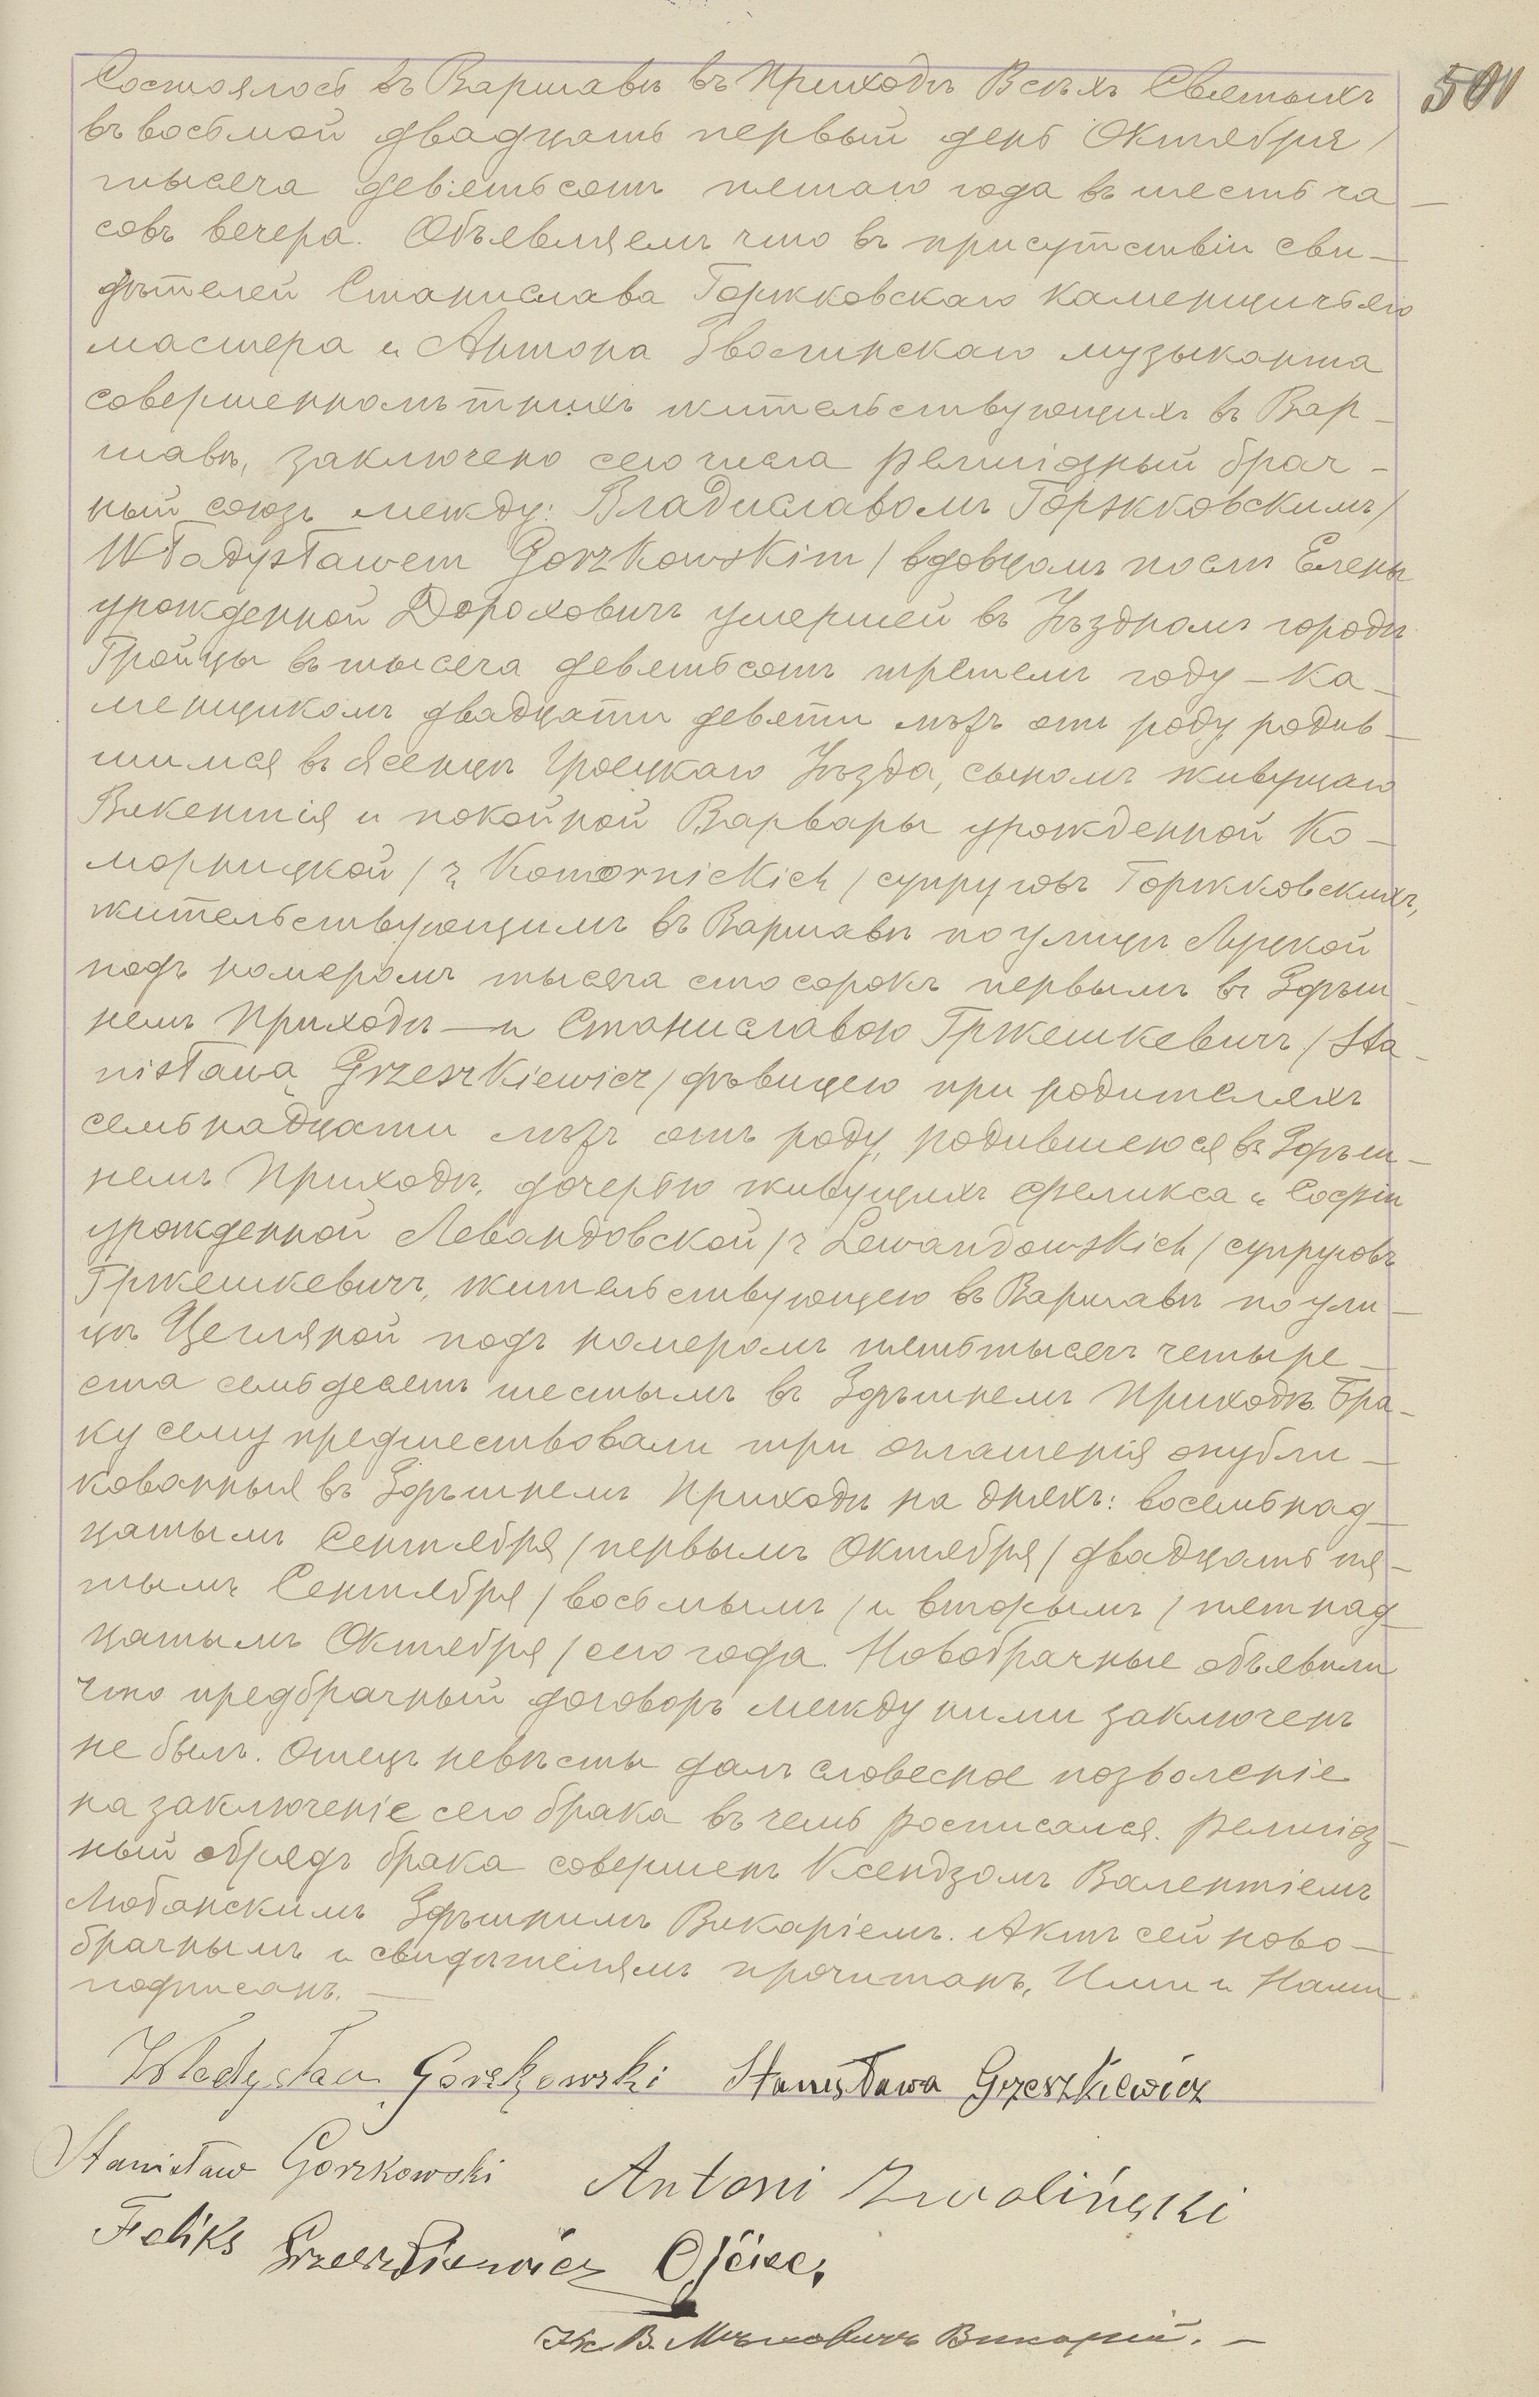 501
Состоялось въ Варшавѣ въ Приходѣ Всѣхъ Святыхъ
въ восьмой двадцать первый день Октября /
тысяча девятьсотъ пятаго года въ шесть ча-
совъ вечера. Объявляемъ что въ присутствіи сви-
дѣтелей Станислава Горжковскаго каменщичьяго
мастера и Антона Зволинскаго музыканта
совершеннолѣтнихъ жительствующихъ въ Вар-
шавѣ, заключено сего числа религіозный брач-
ный союзъ между: Владиславомъ Горжковскимъ /
Władysławem Gorzkowskim / вдовцомъ послѣ Елены
урожденной Дорохвичъ умершей въ Уѣздномъ городѣ
Гройцы въ тысяча девятьсотъ третьемъ году – ка-
менщикомъ двадцати девяти лѣтъ отъ роду родив-
шимся въ Ясенцѣ Гроецкаго Уѣзда, сыномъ живущаго
Викентія и покойной Варвары урожденной Ко-
морницкой / z Komornickich / супруговъ Горжковскихъ,
жительствующимъ въ Варшавѣ по улицѣ Луцкой
подъ номеромъ тысяча сто сорокъ первымъ въ Здѣш-
немъ Приходѣ – и Станиславою Гржешкевичъ / Sta-
nisławą Grzeszkiewicz / дѣвицею при родителяхъ
семьнадцати лѣтъ отъ роду, родившеюся въ Здѣш-
немъ Приходѣ, дочерью живущихъ Феликса и Софіи
урожденной Левандовской / z Lewandowskich / супруговъ
Гржешкевичъ, жительствующею въ Варшавѣ по ули-
цѣ Цегляной подъ номеромъ пятьтысячъ четыре-
ста семьдесятъ шестымъ въ Здѣшнемъ Приходѣ. Бра-
ку сему предшествовали три оглашенія опубли-
кованныя въ Здѣшнемъ Приходѣ на дняхъ: восемьнад-
цатымъ Сентября / первымъ Октября / двадцать пя-
тымъ Сентября / восьмымъ / и вторымъ / пятнад-
цатымъ Октября / сего года. Новобрачные объявили
что предбрачный договоръ между ними заключенъ
не былъ. Отецъ невѣсты далъ словесное позволеніе
на заключеніе сего брака въ чемъ росписался. Религіоз-
ный обрядъ брака совершенъ Ксендзомъ Валентіемъ
Любанскимъ Здѣшнимъ Викаріемъ. Актъ сей ново-
брачнымъ и свидѣтелямъ прочитанъ, Ими и Нами
подписанъ. –
Władysław Gorzkowski Stanisława Grzeszkiewicz
Stanisław Gorzkowski Antoni Zwoliński
Feliks Grzeszkiewicz Ojciec,
Кс. В. Викарій. –